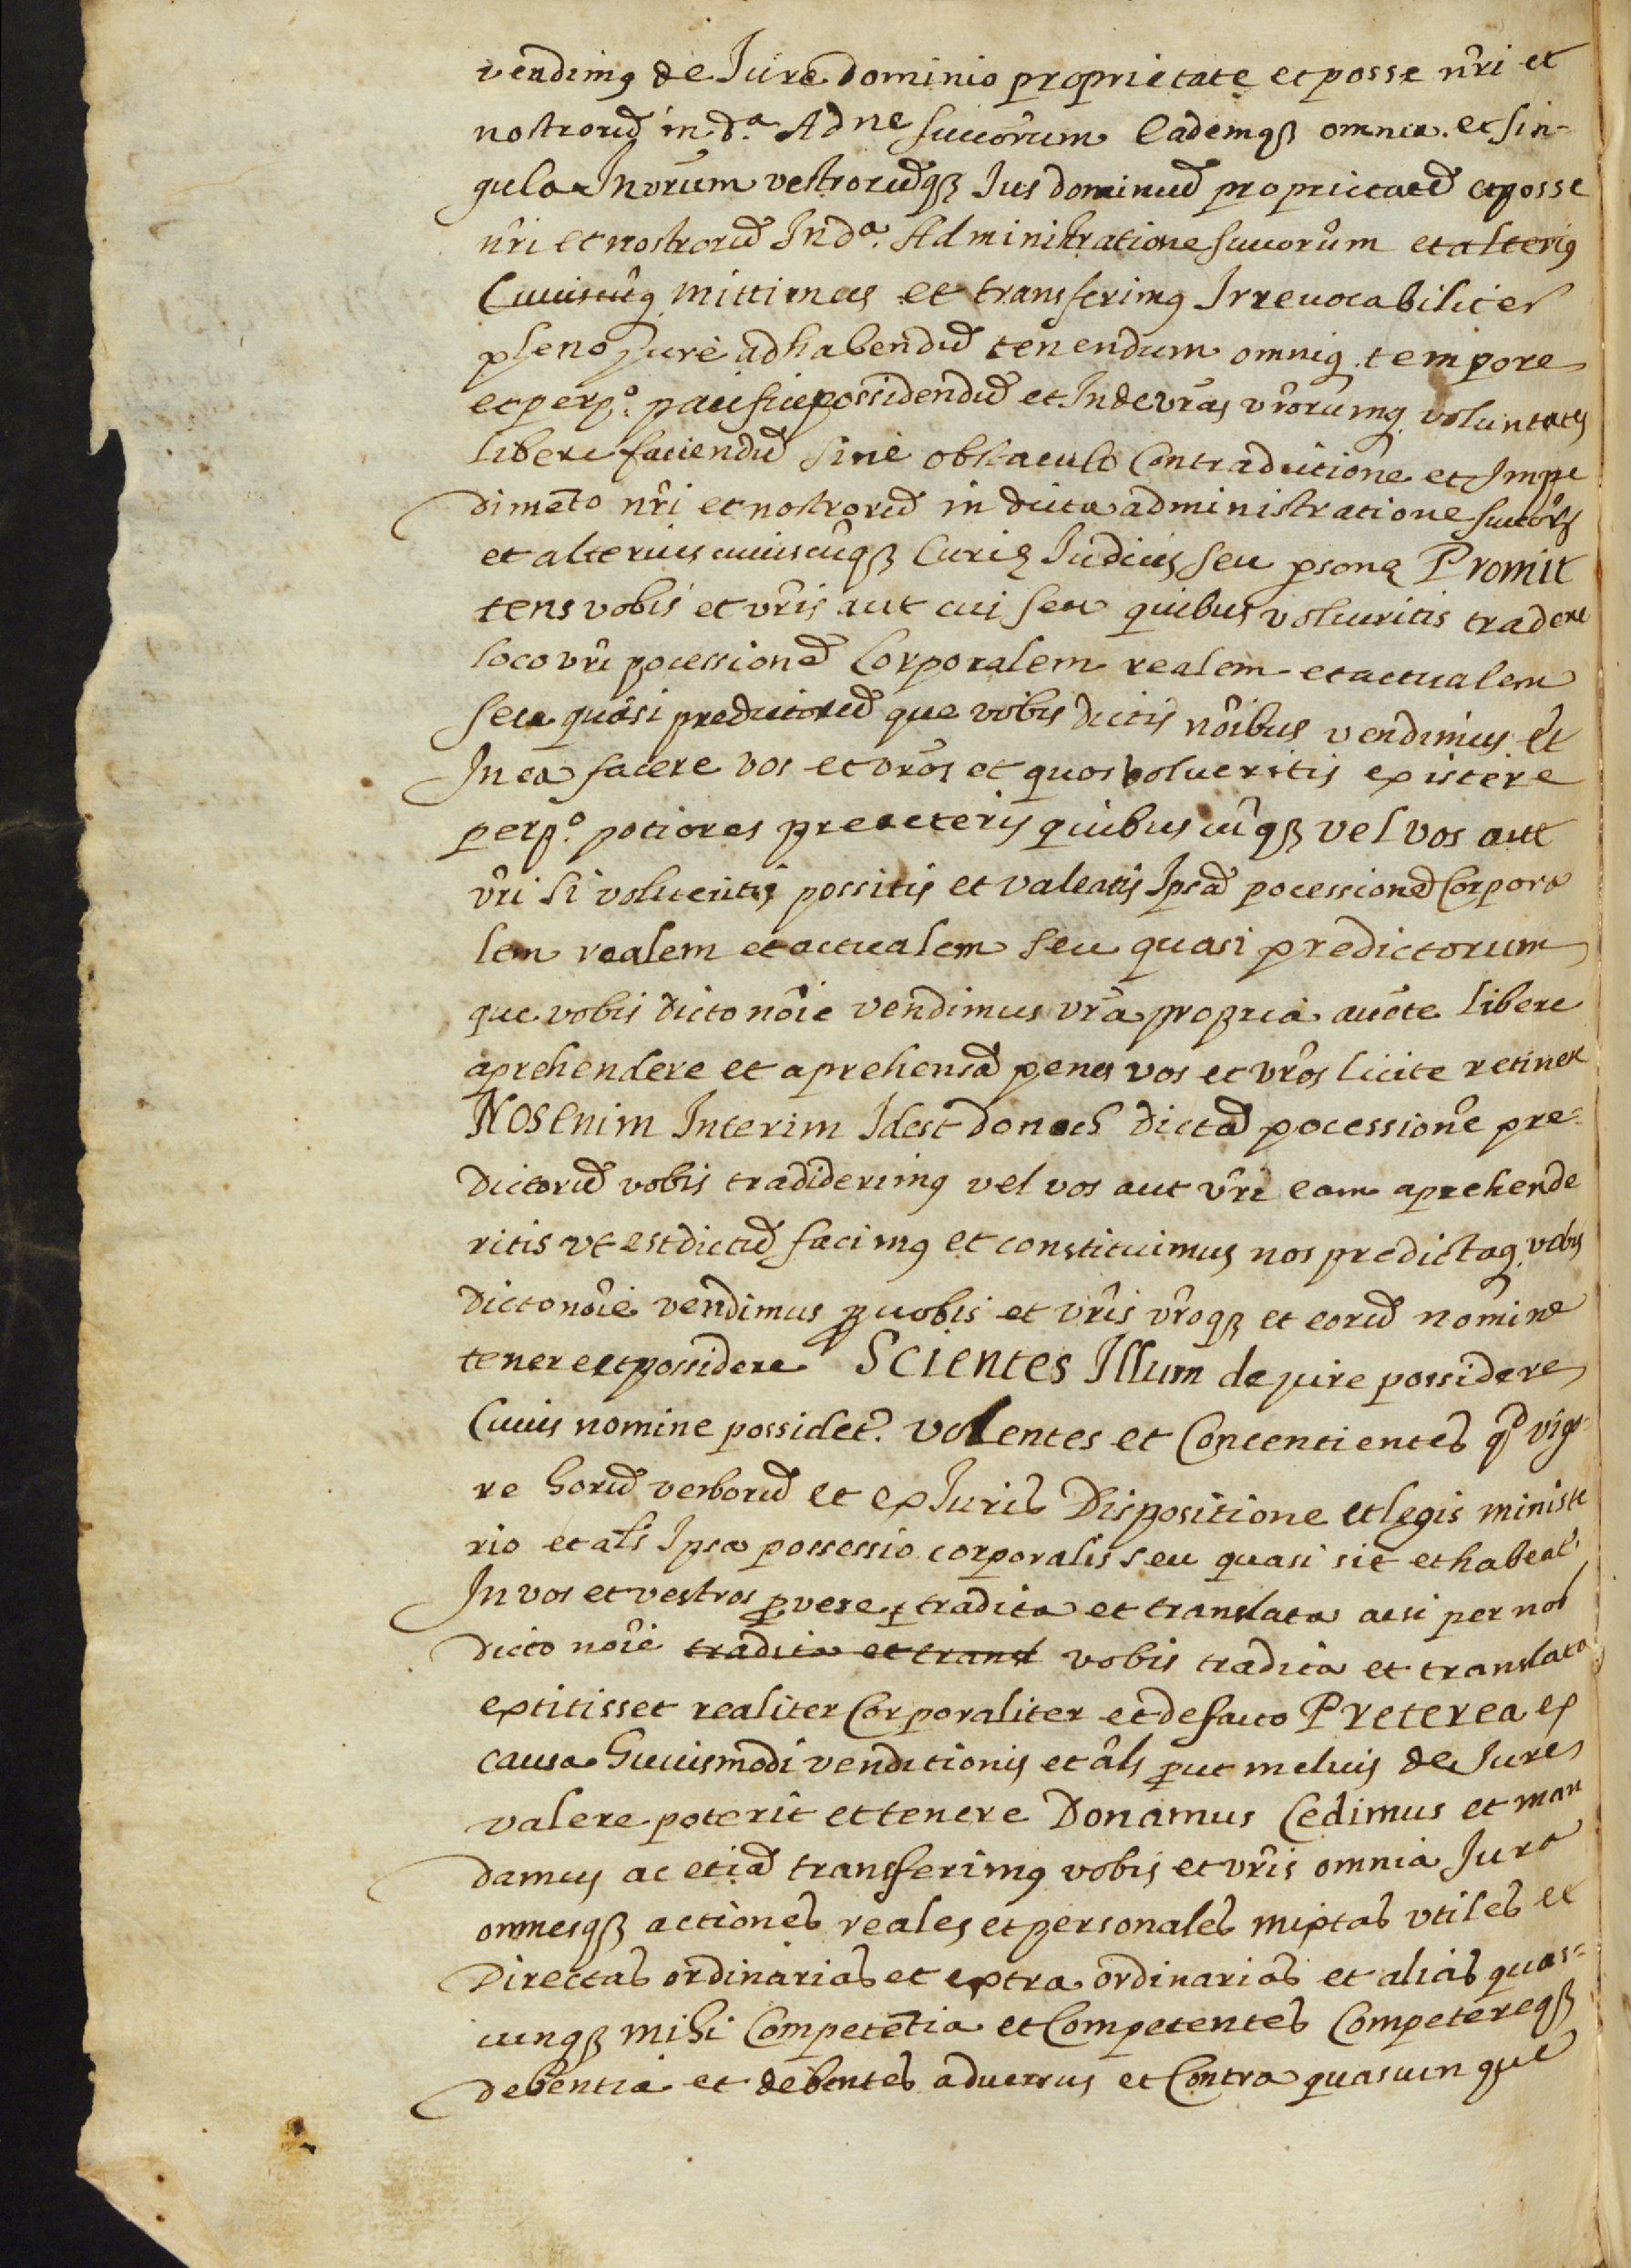 vendimꝰ de Jure dominio proprietate et posse nr̃i et
nostrorũ in d.ª Adne succorum Eademqꝫ omnia et sin-
gula In vrũm vestrorũqꝫ Jus dominiũ proprietatẽ et posse
nr̃i et nostrorũ In dª. Administratione succorum et alteriꝰ
Cuiuscũqꝫ mittimus et transferimꝰ Irreuocabiliter
pleno jure ad habendũ tenendum omniqꝫ tempore
et perp.º pacifice possidendũ et Inde vrãs vrõrumqꝫ voluntates
libere faciendũ sine obstaculo Contradictione et Impe
dimẽto nr̃i et nostrorũ in dicta administratione succorꝫ
et alterius cuiuscũqꝫ Curię Judicis seu psonę Promit
tens vobis et vr̃is aut cui seu quibus volueritis tradere
loco vr̃i pocessionẽ Corporalem realem et actualem
seu quasi predictorũ que vobis dictis nõibus vendimus et
In ea facere vos et vrõs et quos volueritis existere
perp.º potiores pre ceteris quibuscũqꝫ vel vos aut
vr̃i si volueritis possitis et valeatis Ipsã pocessionẽ Corpora
lem realem et actualem seu quasi predictorum
que vobis dicto nõie vendimus vrã propria aucte libere
aprehendere et aprehensã penes vos et vrõs licite retinere
Nos enim Interim Idest donech dictã pocessionẽ pre=
dictorũ vobis tradiderimꝰ vel vos aut vr̃i eam aprehende
ritis vt est dictũ facimꝰ et constituimus nos predicta qꝫ vobis
dicto nõie vendimus p vobis et vr̃is vrõqꝫ et eorũ nomine
tenere et possidere Scientes Illum de jure possidere
Cuius nomine possidet.r Volentes et Concentientes qd vigo-
re horũ verborũ et ex Juris Dispositione et legis ministe
rio et als Ipsa possessio corporalis seu quasi sit et habeat.r
In vos et vestros p vere tradita et translata acsi per nos
dicto nõie tradita et transl vobis tradita et translata
extitisset realiter Corporaliter et de facto Preterea ex
causa huiusmodi venditionis et als put melius de Jure
valere poterit et tenere Donamus Cedimus et man
damus ac etiã transferimꝰ vobis et vr̃is omnia Jura
omnesqꝫ actiones reales et personales mixtas vtiles et
Directas ordinarias et extra ordinarias et alias quas=
cunqꝫ mihi Competẽtia et Competentes Competereqꝫ
debentia et debentes aduersus et Contra quascunque